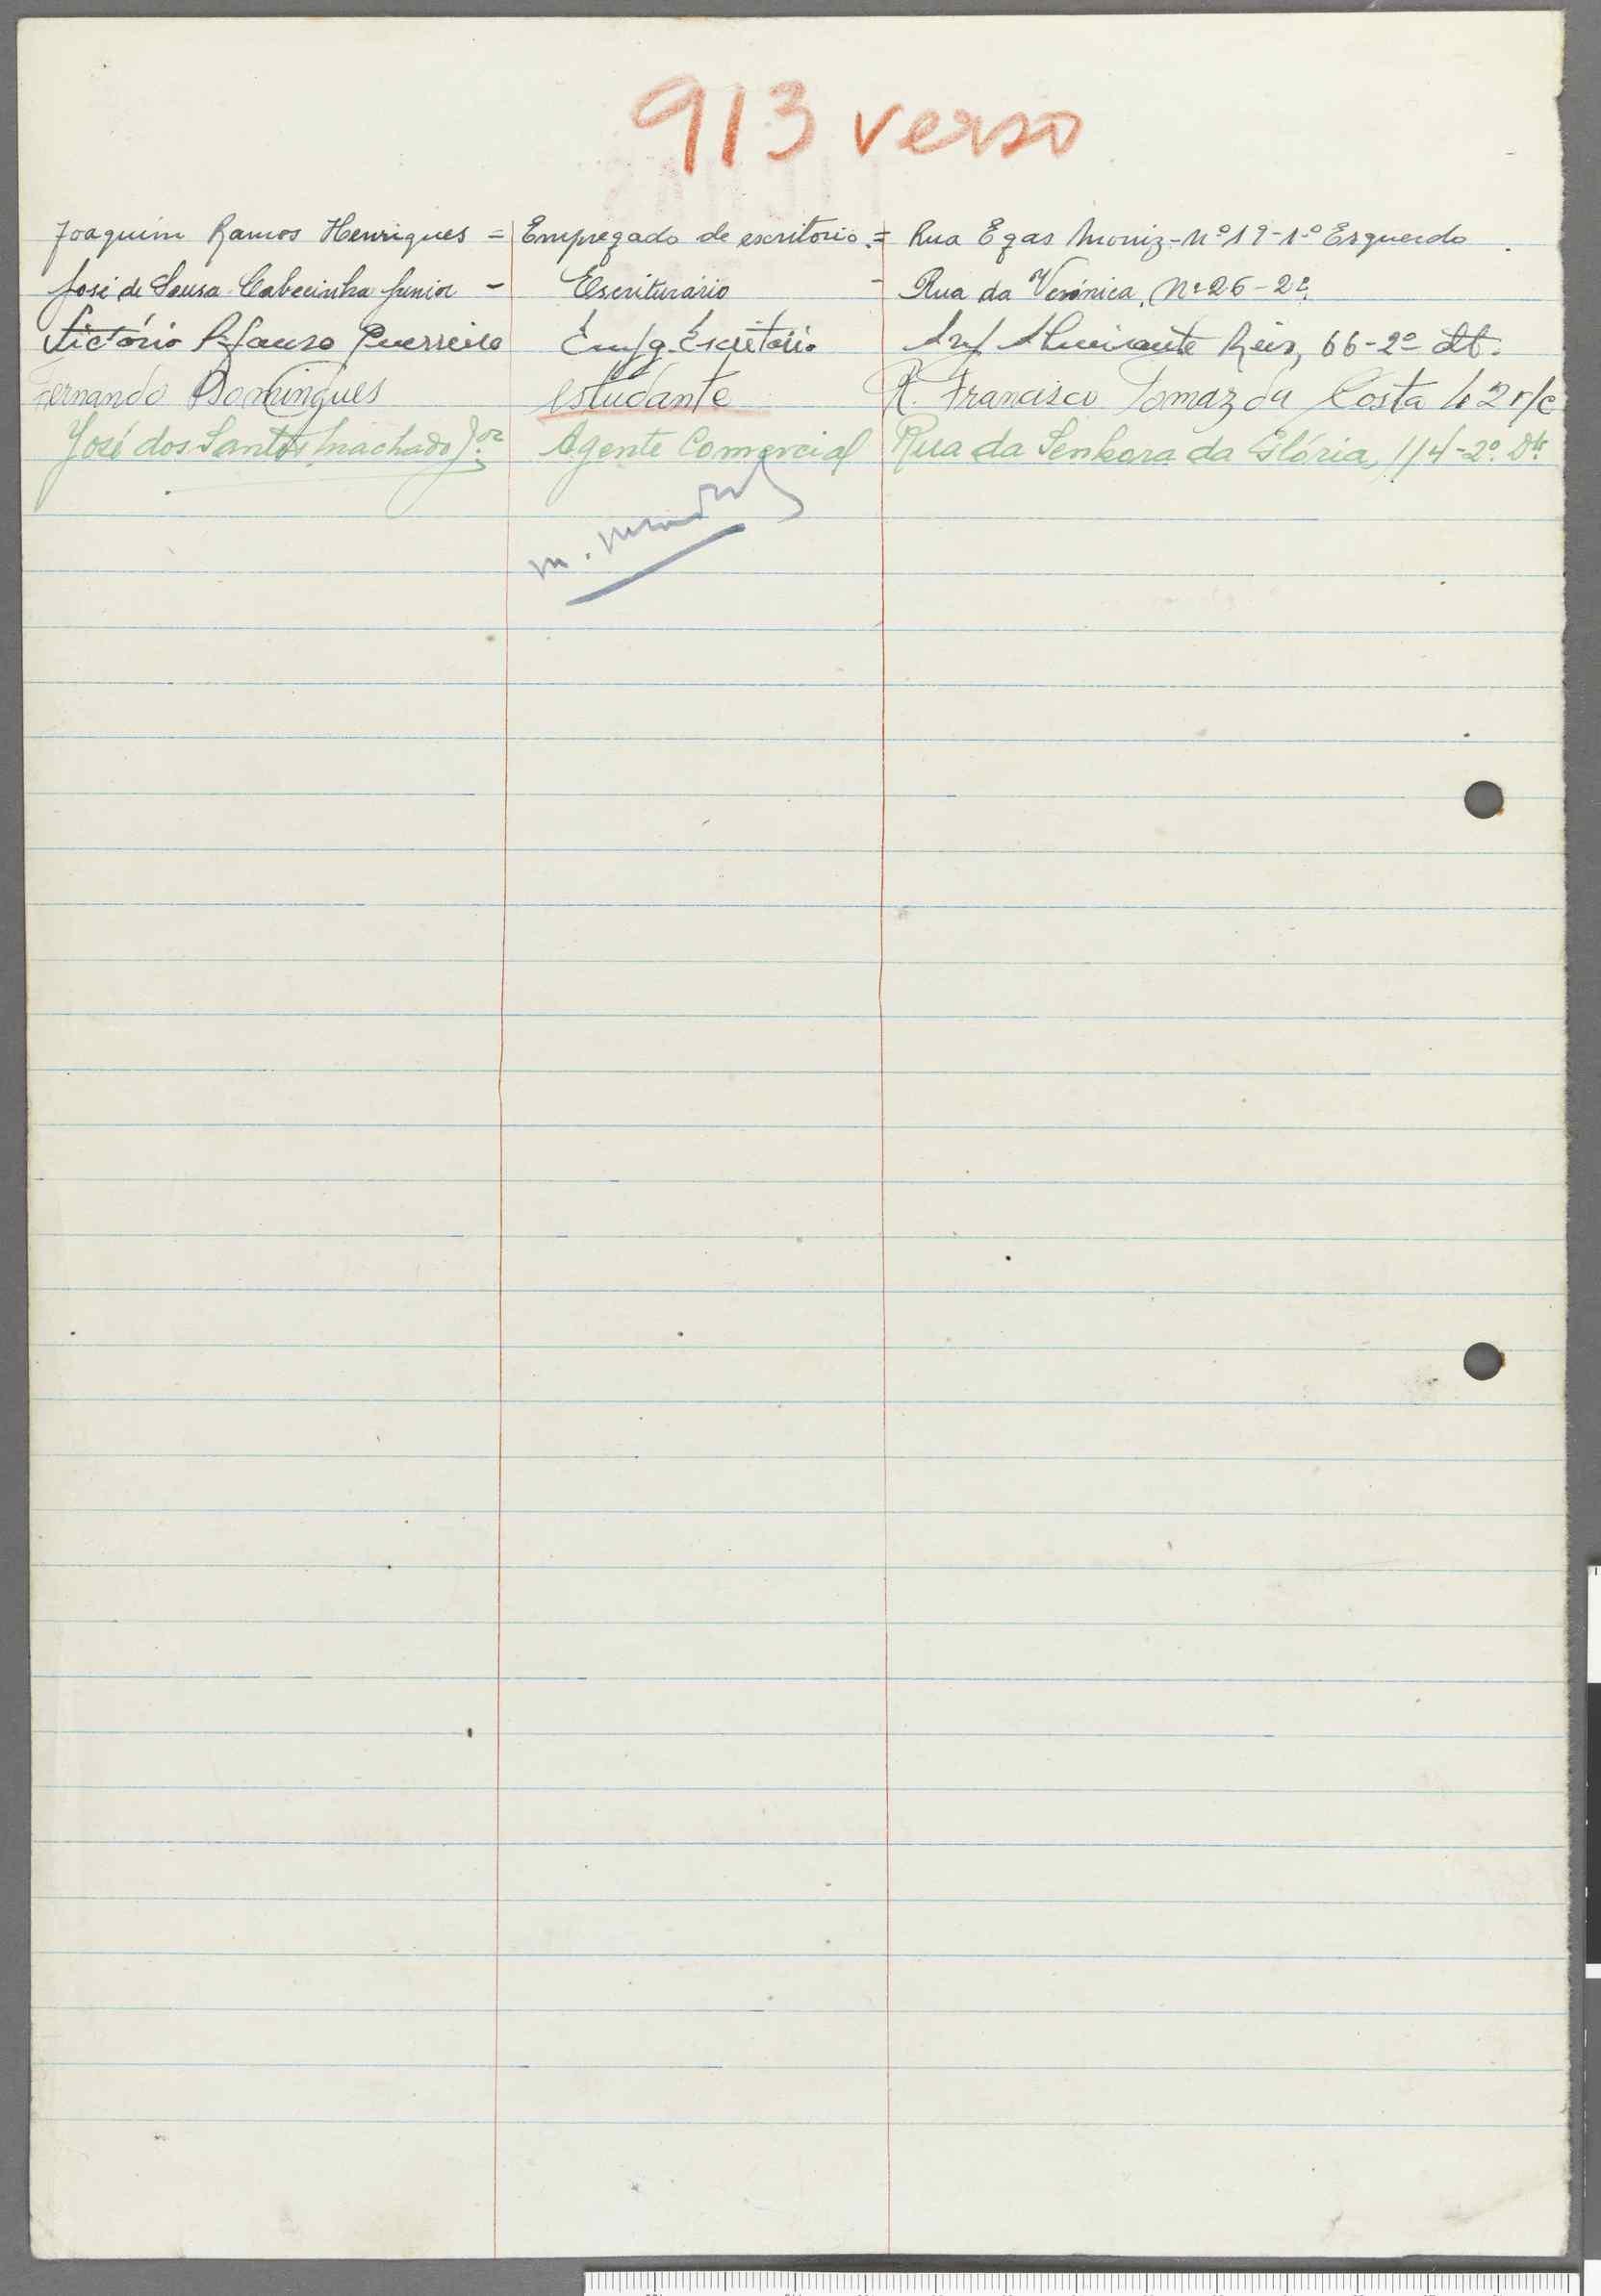 913 verso
Joaquim Ramos Henriques = Empregado de escritorio = Rua Egas Moniz - nº 19 - 1º Esquerdo
José de Sousa Cabecinha Junior - Escriturário - Rua da Verónica, Nº 26 - 2º.
Victório Afonso Guerreiro Empg. Escritório Almirante Reis, 66 - 2º dt.
Fernando Domingues estudante R. Francisco Tomaz da Costa r/c
José dos Santos Machado Jor Agente Comercial Rua da Senhora da Glória, 114 - 2º. Dto.
m.